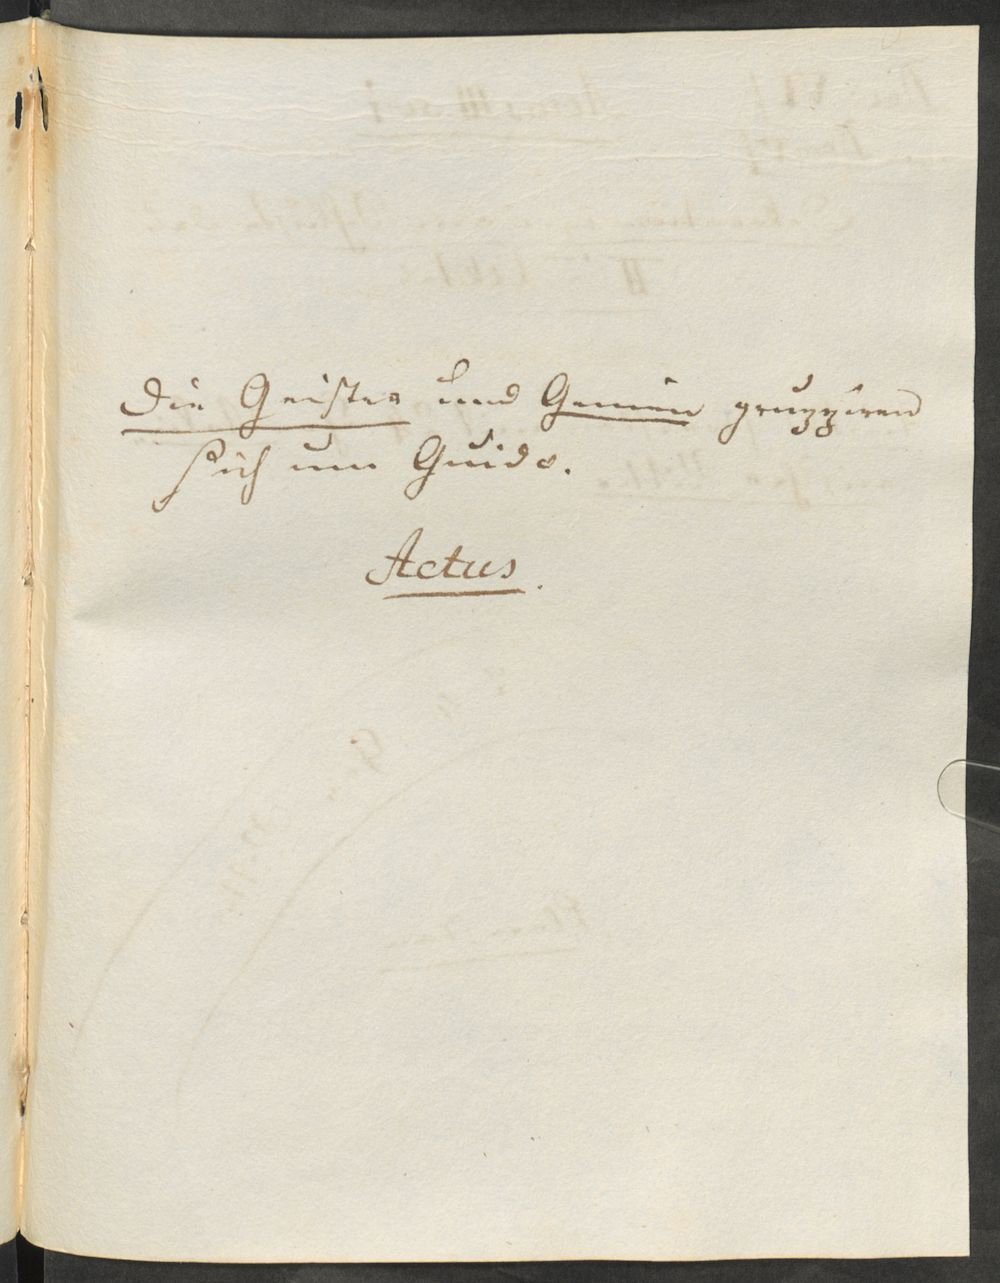 Die Geister und Genien gruppiren
sich um Guido.
Actus.